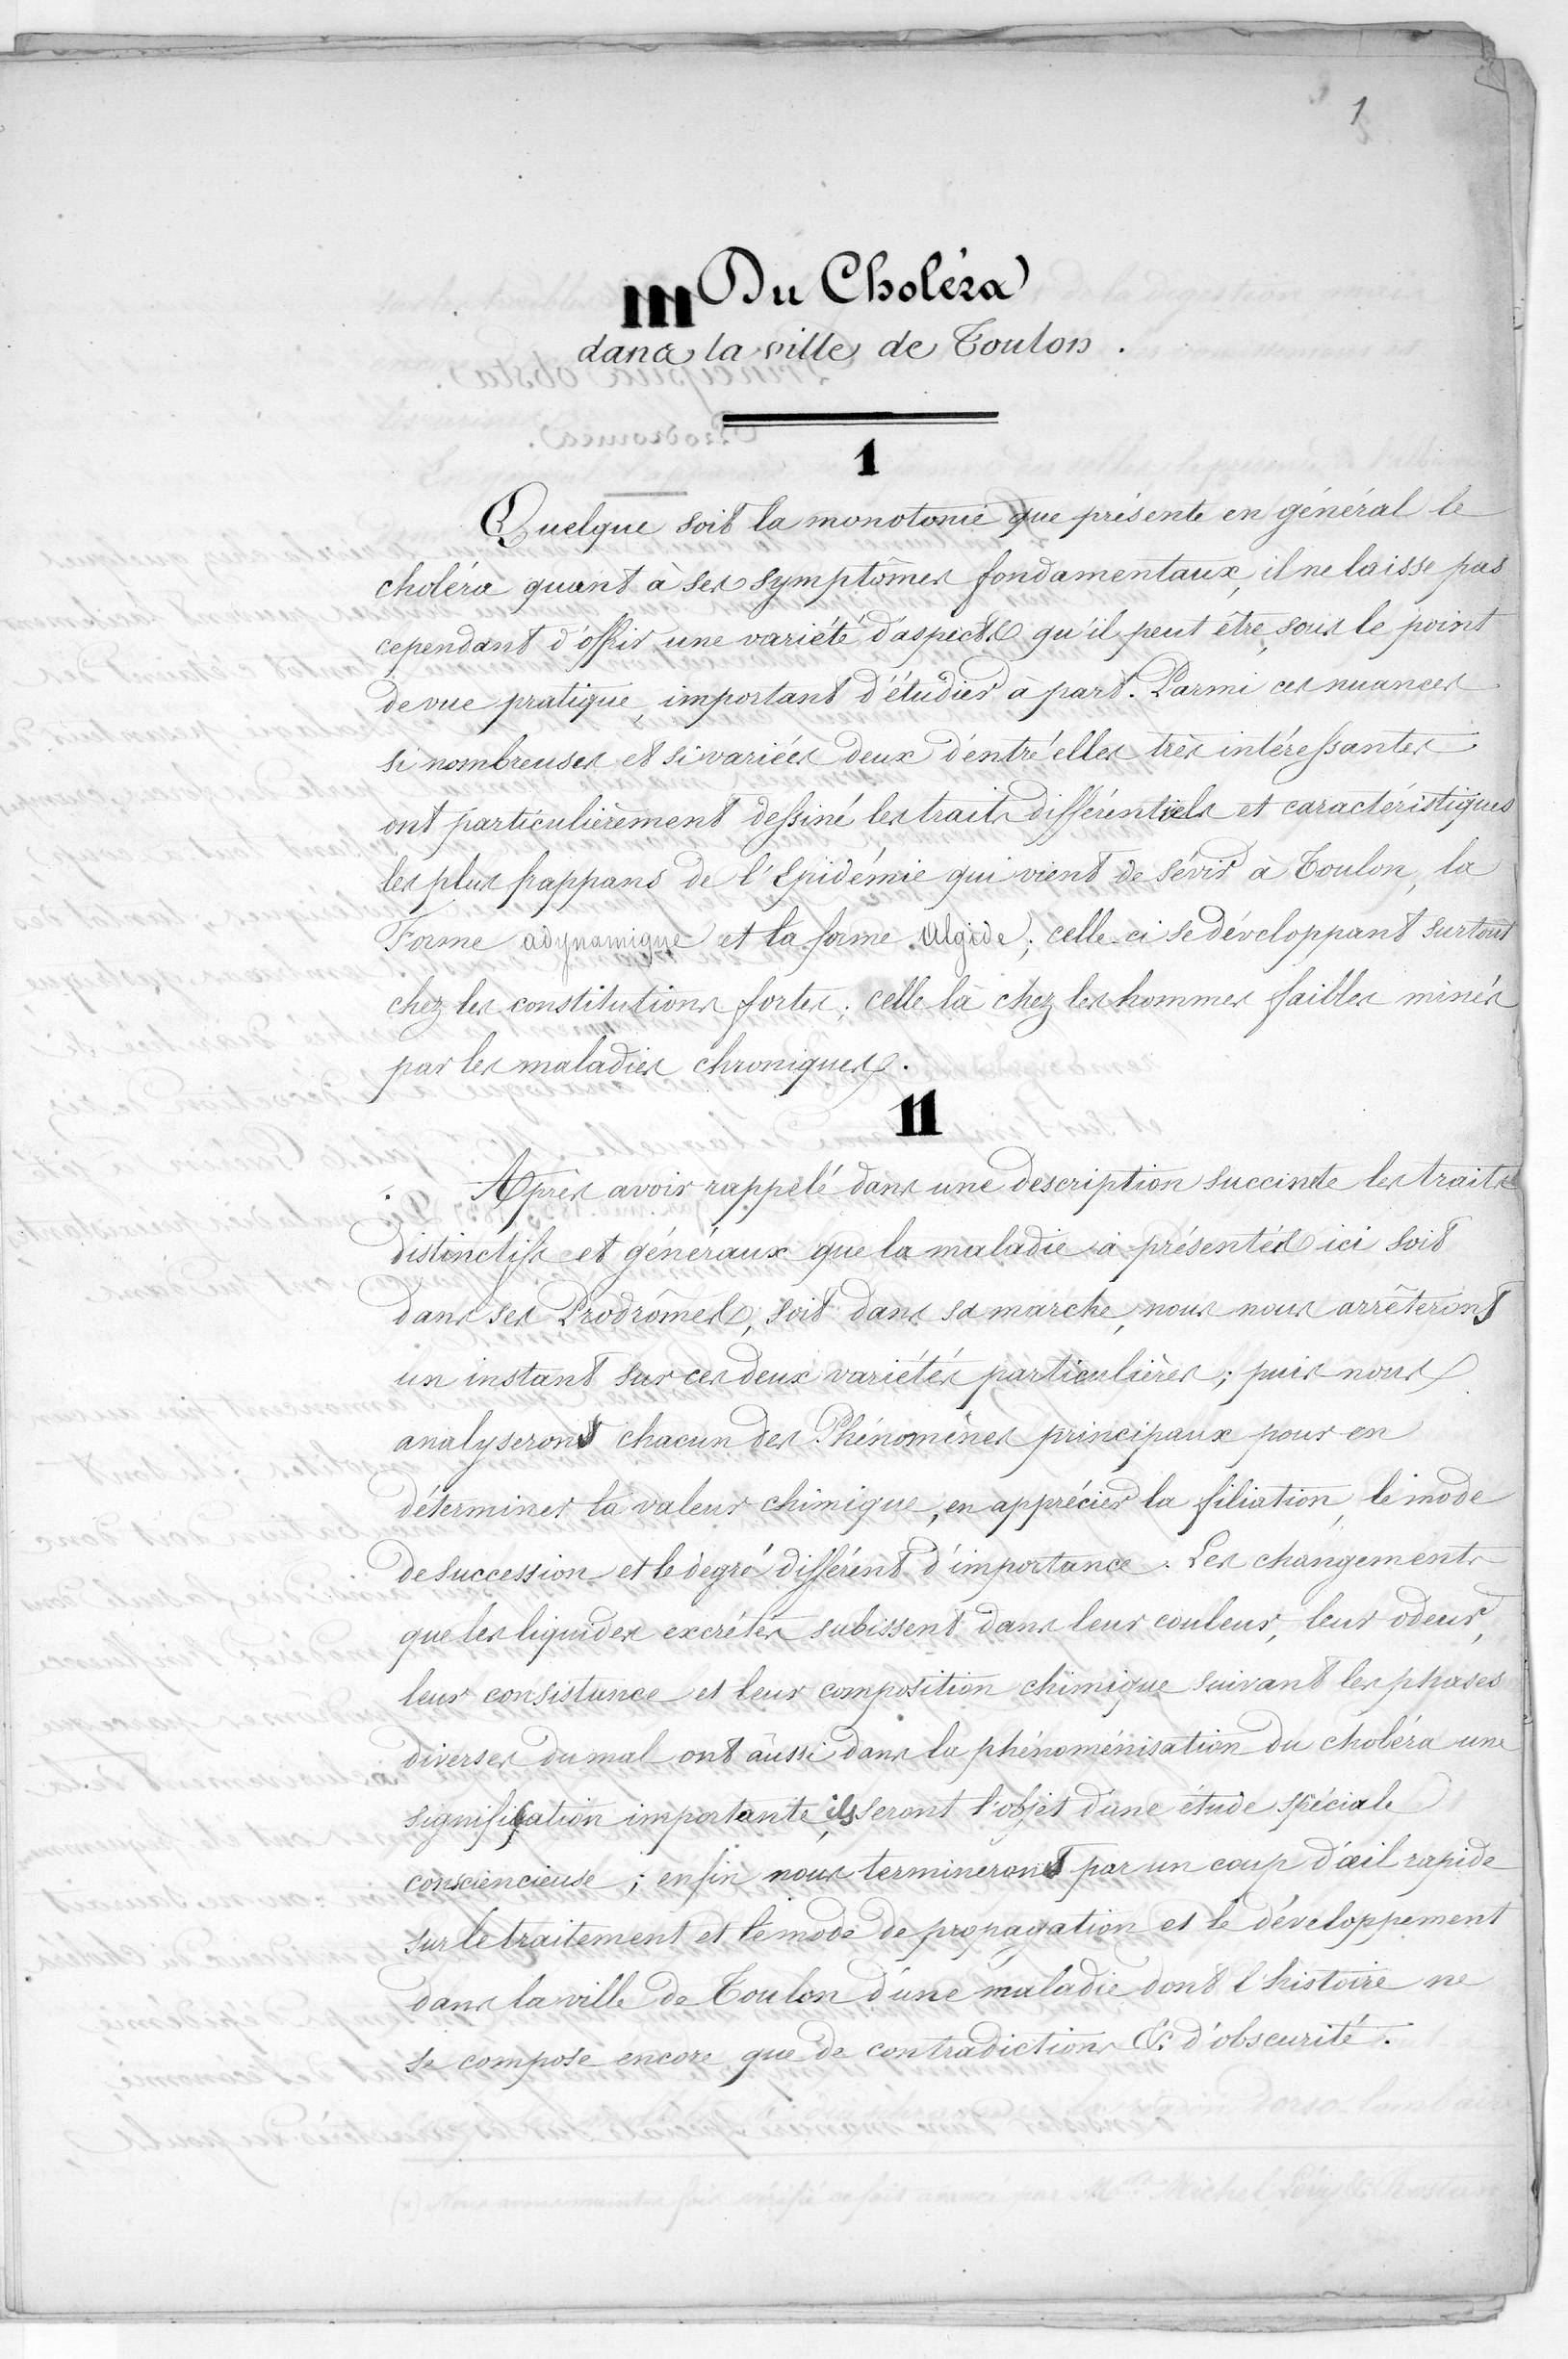 1
III Du Choléra
dans la ville de Toulon.
1
Quelque soit la monotonie que présente en général le
choléra quant à ses symptômes fondamentaux, il ne laisse pas
cependant d'offrir une variété d'aspects qu'il peut être, sous le point
de vue pratique, important d'étudier à part. Parmi ces nuances
si nombreuses et si variées deux d'entré elles très intéressantes
ont particulièrement dessiné les traits différentiels et caractéristiques
les plus frappans de l'Epidémie qui vient de sévir à Toulon, la
Forme adynamique et la forme Algide; celle-ci se développant surtout
chez les constitutions fortes; celle là chez les hommes faibles minés
par les maladies chroniques.
11
Après avoir rappelé dans une description succincte les traits
distinctifs et généraux que la maladie a présentés ici soit
dans ses Prodrômes, soit dans sa marche, nous nous arrêterons
un instant sur ces deux variétés particulières; puis nous
analyserons chacun des Phénomènes principaux pour en
déterminer la valeur chimique, en apprécier la filiation, le mode
de succession et le dégré différent d'importance. Les changements
que les liquides excrétés subissent dans leur couleur, leur odeur,
leur consistance et leur composition chimique suivant les phases
diverses du mal ont aussi dans la phénoménisation du choléra une
signification importante, ils seront l'objet d'une étude spéciale
consciencieuse; enfin nous terminerons par un coup d'œil rapide
sur le traitement et le mode de propagation et le développement
dans la ville de Toulon d'une maladie dont l'histoire ne
se compose encore que de contradictions & d'obscurité.